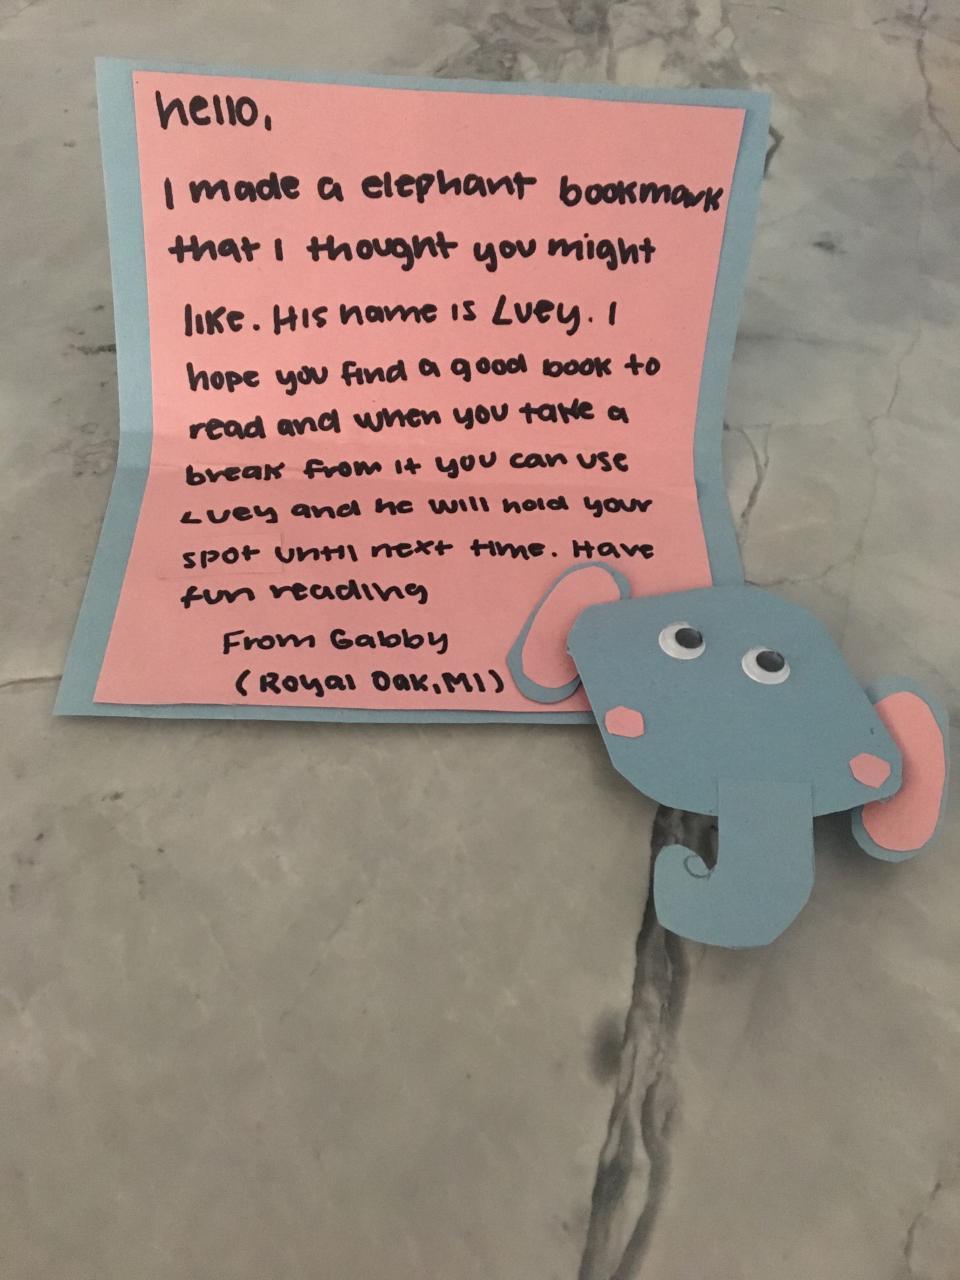 hello,
I made a elephant bookmark
that I thought you might
like. His name is Luey. I
hope you find a good book to
read and when you take a
break from it you can use
Luey and he will hold your
spot until next time. Have
fun reading
From Gabby
(Royal Oak, MI)